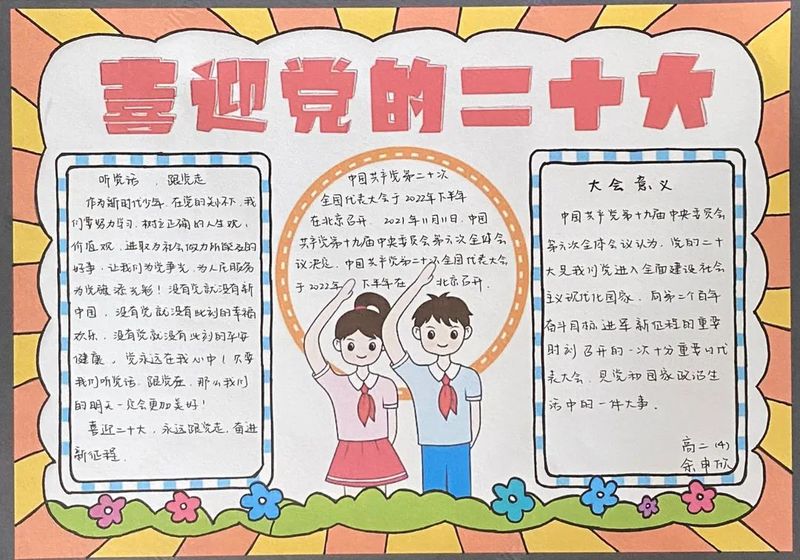 喜迎党的二十大
听党话,跟党走
作为新时代少年,在党的关怀下,我
们要努力学习,树立正确的人生观,
价值观,进取为社会做力所能及的
好事,让我们为党争光,为人民服务
为党旗添光彩!没有党就没有新
中国,没有党就没有此刻的幸福
欢乐,没有党就没有此刻的平安
健康,党永远在我心中!只要
我们听党话,跟党走,那么我们
的明天一定会更加美好!
喜迎二十大,永远跟党走,奋进
新征程.
中国共产党第二十次
全国代表大会于2022年下半年
在北京召开.2021年11月11日,中国
共产党第十九届中央委员会第六次全体会
议决定,中国共产党第二十次全国代表大会
于2022年下半年在北京召开.
大会意义
中国共产党第十九届中央委员会
第六次全体会议认为,党的二十
大是我们党进入全面建设社会
主义现代化国家,向第二个百年
奋斗目标进军新征程的重要
时刻召开的一次十分重要的代
表大会,是党和国家政治生
活中的一件大事.
高二(4)
余申欣